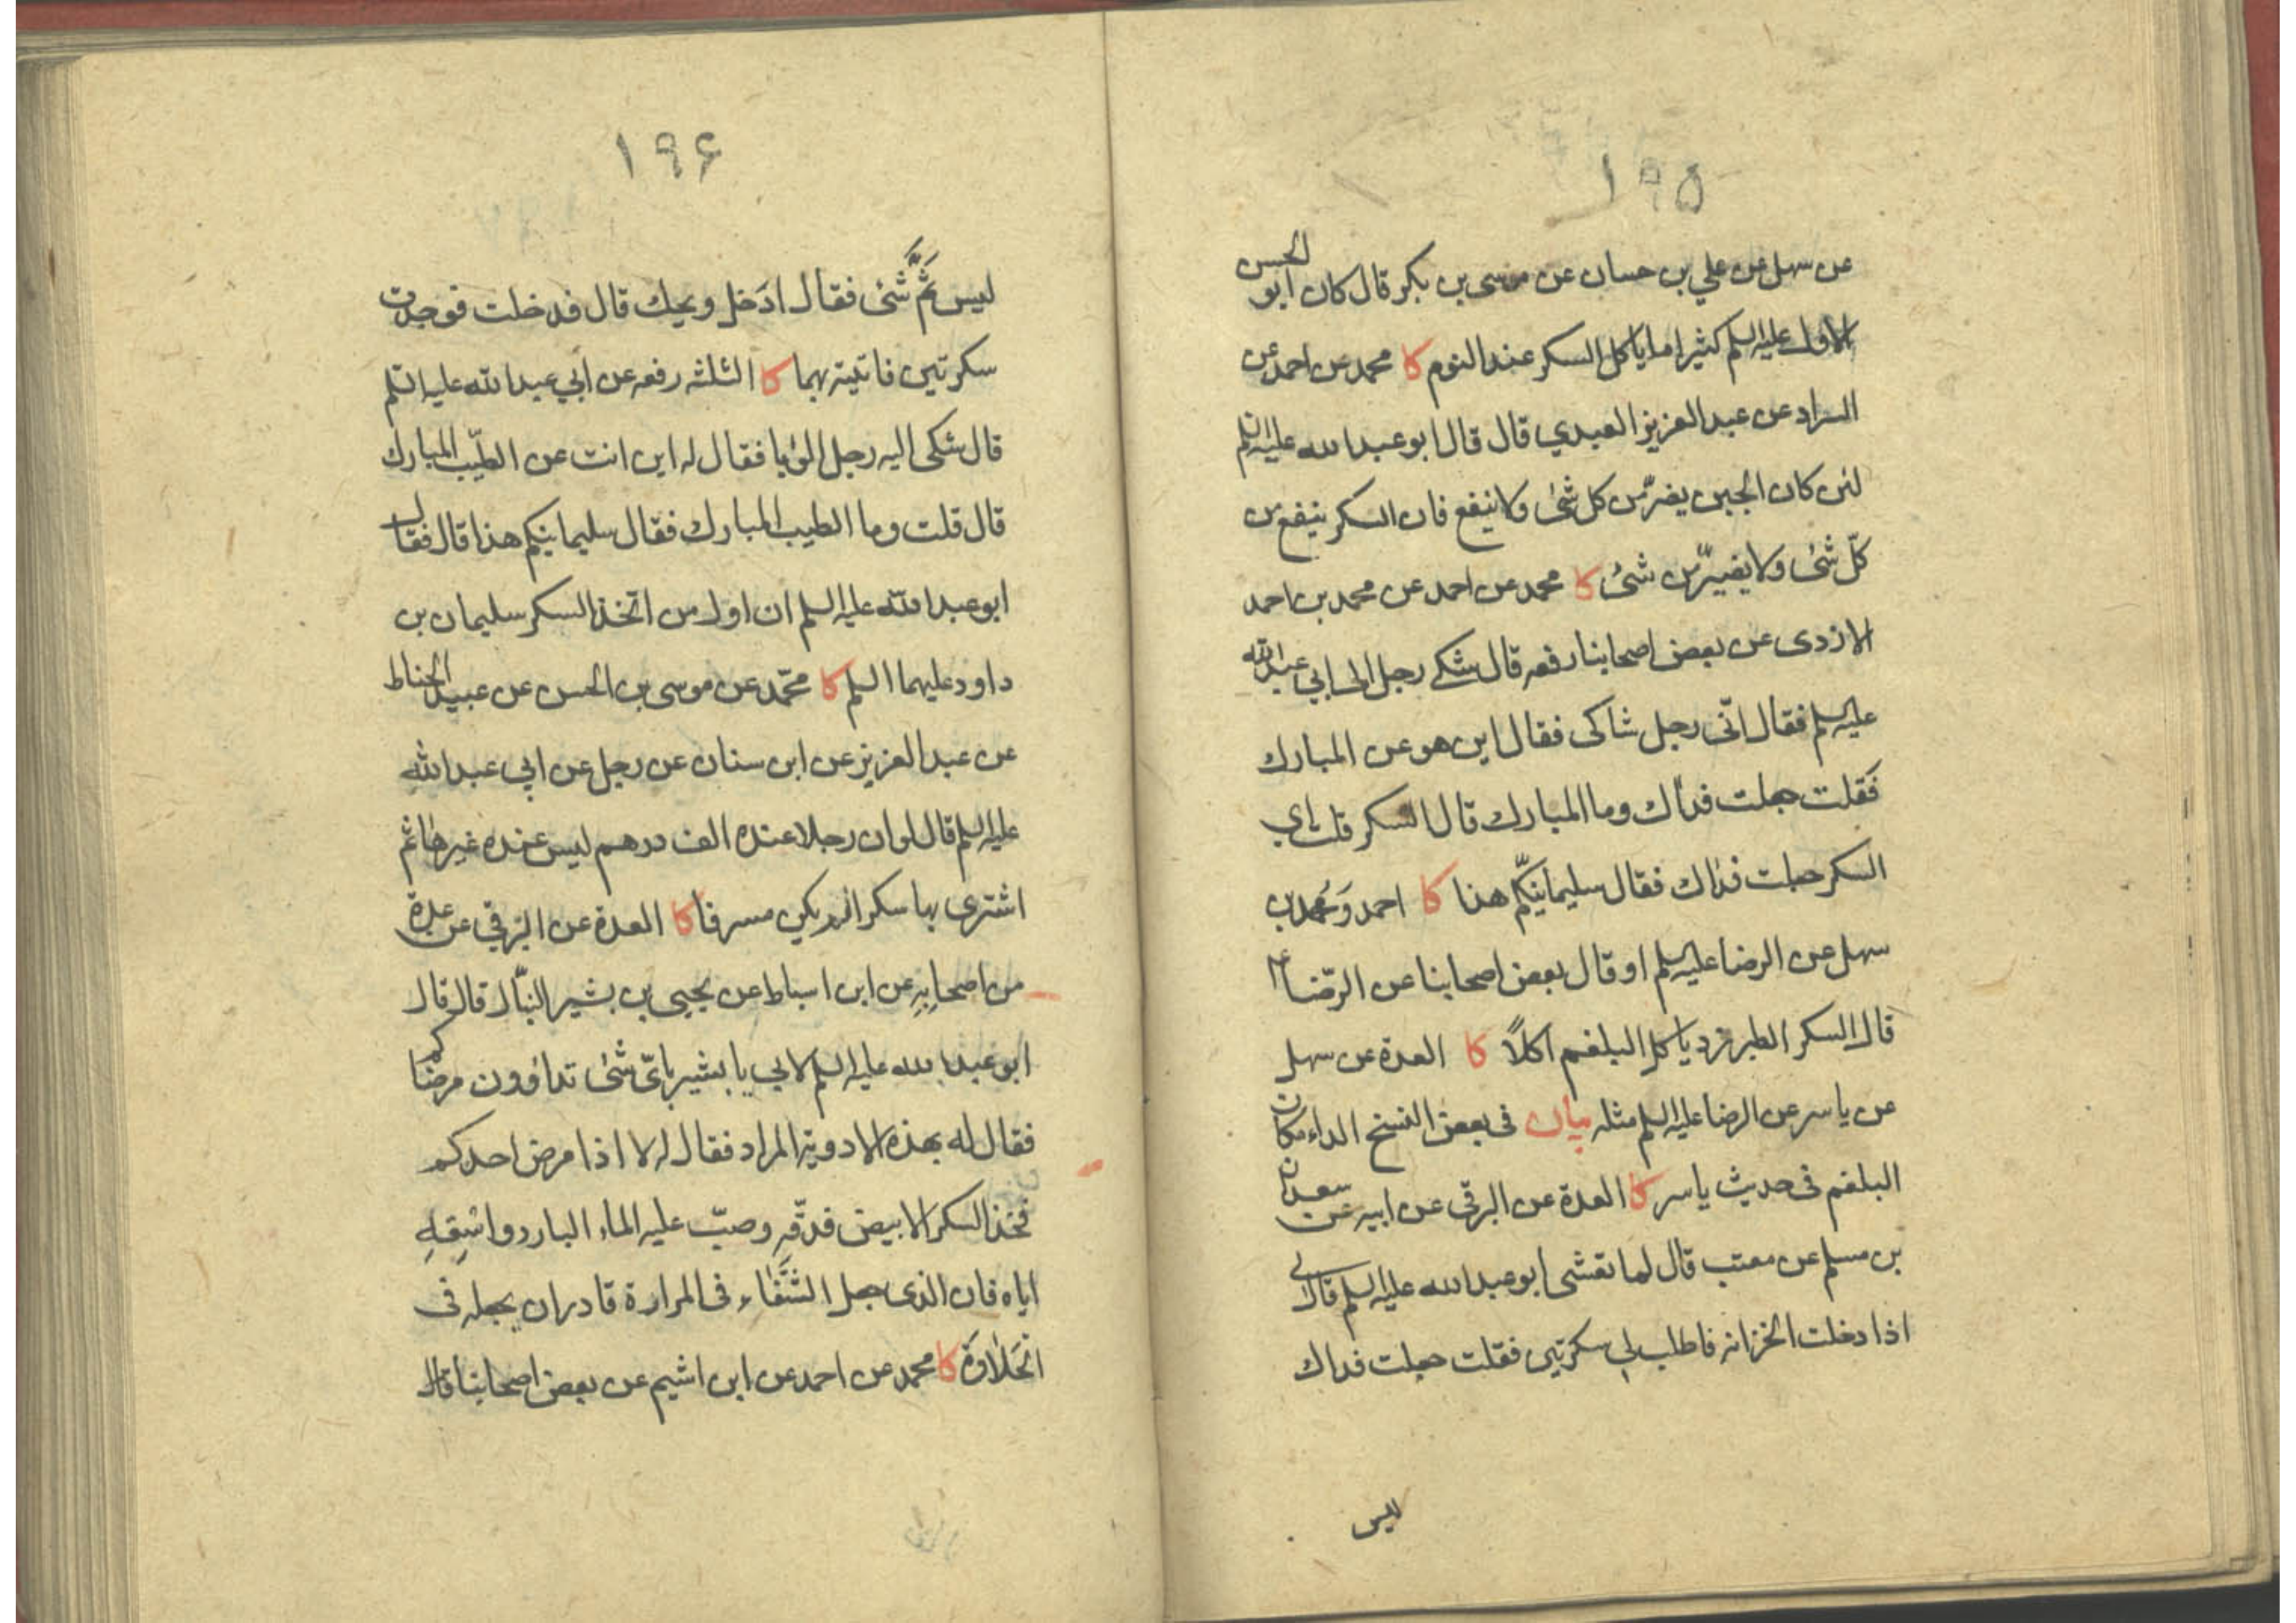 ١٩٥
عن سهل عن علي بن حسان عن موسى بن بكر قال كان ابو الحسن
الاول عليه السلم كثيرا ما ياكل السكر عند النوم كا محمد عن احمد عن
السراد عن عبد العزيز العبدي قال قال ابو عبد الله عليه السلم
لئن كان الجبن يضرّ من كل شئ ولا ينفع فان السكر ينفع من
كلّ شئ ولا يضرّ من شئ كا محمد عن احمد عن محمد بن احمد
الازدى عن بعض اصحابنا رفعه قال شكى رجل الى ابي عبد الله
عليه السلم فقال انّى رجل شاكى فقال اين هو عن المبارك
فَقلت جعلت فداك وما المبارك قال السكر قلت اي
السكر جعلت فداك فقال سليمانيّكم هذا كا احمد وَمُحمد بن
سهل عن الرضا عليه السلم او قال بعض اصحابنا عن الرّضا ع
قال السكر الطبرزد ياكل البلغم اكلًا كا العدة عن سهل
عن ياسر عن الرضا عليه السلم مثله بيان فى بعض النسخ الداء مكان
البلغم فى حديث ياسر كا العدة عن البرقى عن ابيه عن سعدان
بن مسلم عن معتب قال لما تعشى ابو عبد الله عليه السلم قال لى
اذا دخلت الخزانه فاطلب لي سكرتين فقلت جعلت فداك
ليس
١٩۶
ليس ثَمَّ شَئ فقال ادخل ويحك قال فدخلت فوجدت
سكرتين فاتيته بهما كا الثلثه رفعه عن ابي عبد الله عليه السّلم
قال شكى اليه رجل الوبا فقال له اين انت عن الطيّب المبارك
قال قلت وما الطيب المبارك فقال سليمانيكم هذا قال فقال
ابو عبد الله عليه السلم ان اول من اتّخذ السكر سليمان بن
داود عليهما السلم كا محمّد عن موسى بن الحسن عن عبيد الخناط
عن عبد العزيز عن ابن سنان عن رجل عن ابي عبد الله
عليه السلم قال لو ان رجلا عنده الف درهم ليس عنده غيرها ثم
اشترى بها سكرا لم يكن مسرفا كا العدة عن البرقي عن عدة
من اصحابِهِ عن ابن اسباط عن يحيى بن بشير النبّال قال قال
ابو عبد الله عليه السلم لابي يا بشير باىّ شَئ تداوون مرضاكم
فقال له بهذه الادوية المرار فقال له لا اذا مرض احدكم
فخذ السكر الابيض فدقّهِ وصبّ عليه الماء البارد واسْقِهِ
اياه فان الذى جعل الشّفاء فى المرارة قادر ان يجعله فى
الحَلاوَة كا محمد عن احمد عن ابن اشيم عن بعض اصحابنا قال